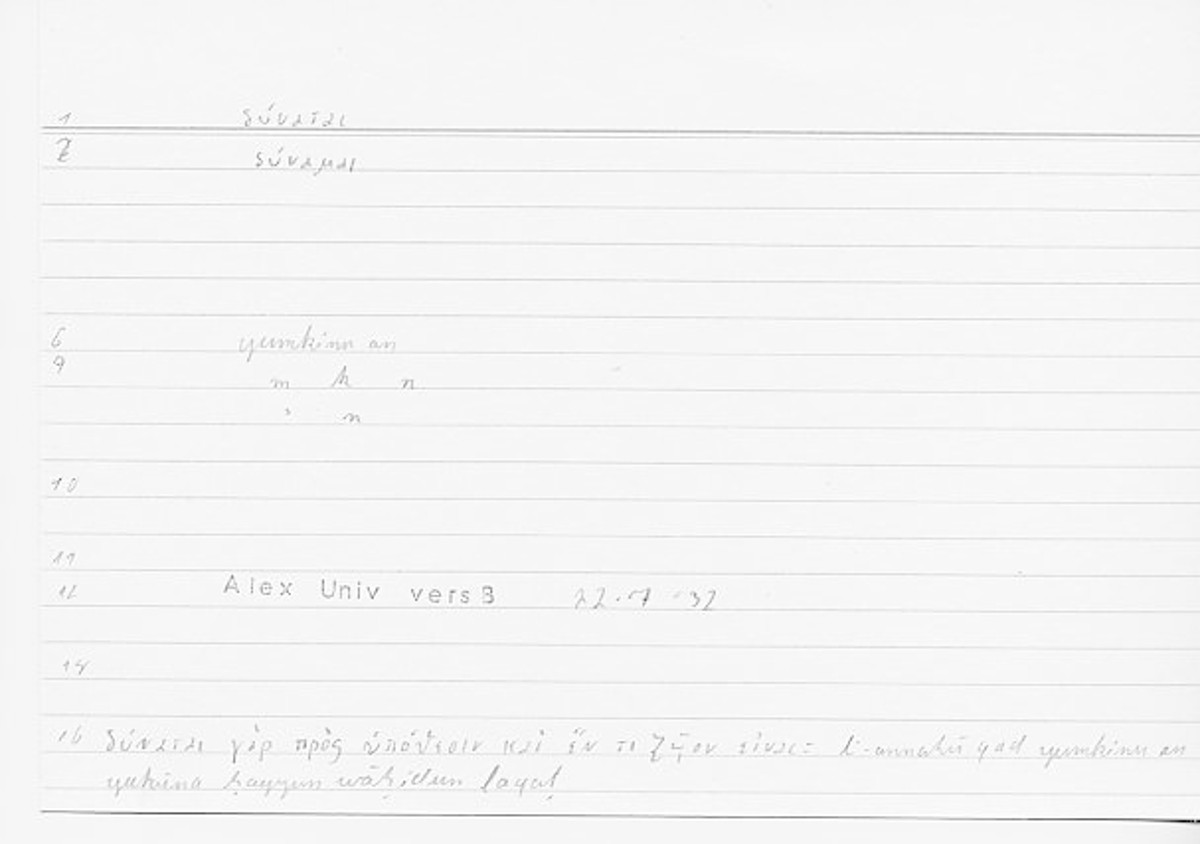 1 δύναται
2 δύναμαι
6 yumkinu an
9
m k n
ʾ n
10
11
12 Alex Univ vers B 22.7
14
16 δύναται γὰρ πρὸς ὑπόθεσιν καὶ ἕν τι ζῷον εἶναι = li-annahū qad yumkinu an
yakūna ḥayyun wāḥidun faqaṭ